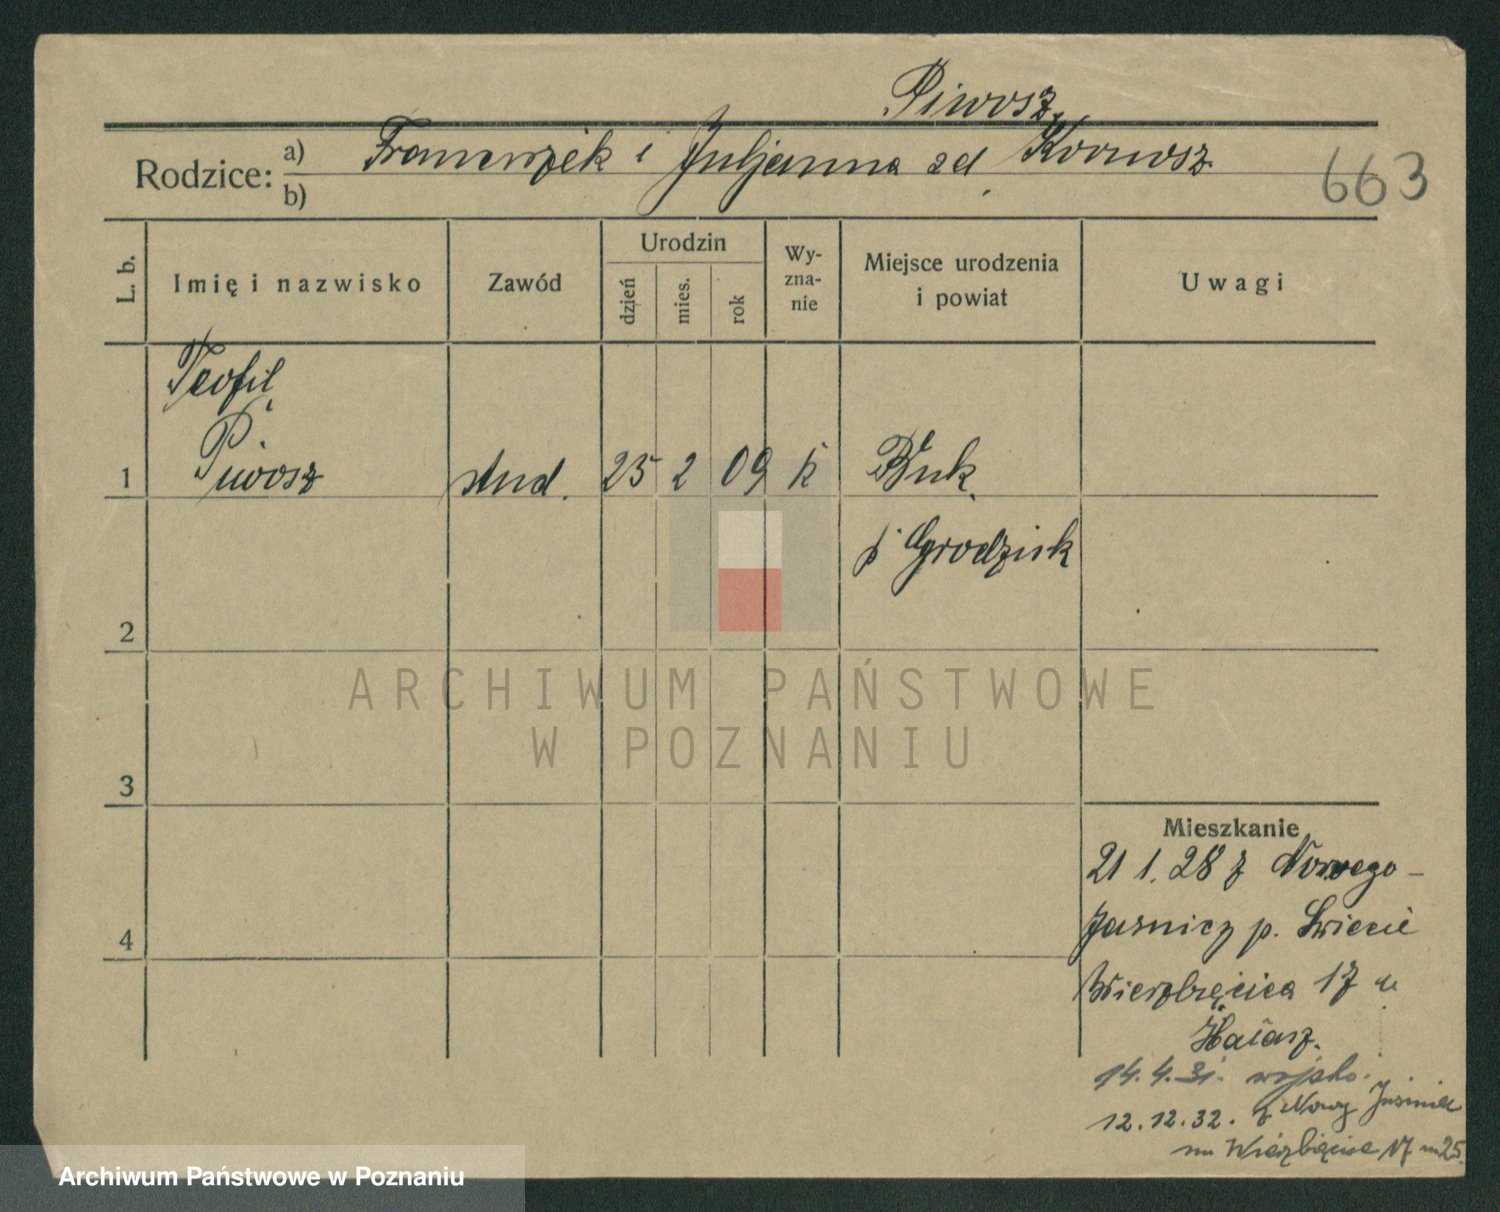 Piwosz
Rodzice: a) Franciszek i Juljanna zd
b)
663
L. b.
Imię i nazwisko
Zawód
Urodzin
dzień
mies.
rok
Wy-
zna-
nie
Miejsce urodzenia
i powiat
Uwagi
Teofil
Piwosz
1
stud.
25 2 09 k
Buk
p Grodzisk
2
ARCHIWUM PAŃSTWOWE
W POZNANIU
3
Mieszkanie
21 1. 28 z Nowego-
Jasnicz p. Świecie
4
Wierzbięcice 17 u
14.4.31. wojsko.
12.12.32. z Nowy
na Wierzbięcice 17 m 25
Archiwum Państwowe w Poznaniu